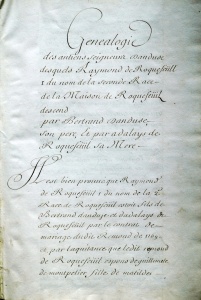 Genealogie
des antiens seigneurs danduse
desquels Raymond de Roquefeuil
1 du nom de la seconde Race
de la Maison de Roquefeuil
descend
par Bertrand danduse
son pere, et par adalays de
Roquefeuil sa Mere
Il est bien prouvé que Raymond
de Roquefeuil 1 du nom de la 2e
Race de Roquefeuil estoit fils de
Bertrand danduse et dadalays de
Roquefeuil par le contrat de
mariage dudit Remond de
par laquitance que ledit remond
de Roquefeuil espoux de guillemete
de montpelier fille de matildes